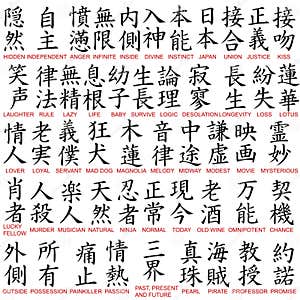 隠 自 憤 無 内 入 本 日 接 正 接
然 主 懣 限 側 神 能 本 合 義 吻
HIDDEN INDEPENDENT ANGER INFINITE INSIDE DIVINE INSTINCT JAPAN UNION JUSTICE KISS
笑 律 無 息 幼 生 論 寂 長 紛 蓮
声 法 精 根 子 長 理 寥 生 失 華
LAUGHTER RULE LAZY LIFE BABY SURVIVE LOGIC DESOLATION LONGEVITY LOSS LOTUS
情 老 義 狂 木 音 中 謙 映 霊
人 実 僕 犬 蓮 律 途 虚 画 妙
LOVER LOYAL SERVANT MAD DOG MAGNOLIA MELODY MIDWAY MODEST MOVIE MYSTERIOUS
肖 人 楽 天 忍 正 現 老 万 契
者 殺 人 然 者 常 今 酒 能 機
LUCKY FELLOW MURDER MUSICIAN NATURAL NINJA NORMAL TODAY OLD WINE OMNIPOTENT CHANCE
外 所 痛 情 三 真 海 教 約
側 有 止 熱 界 珠 賊 授 諾
OUTSIDE POSSESSION PAINKILLER PASSION PAST, PRESENT AND FUTURE PEARL PIRATE PROFESSOR PROMISE